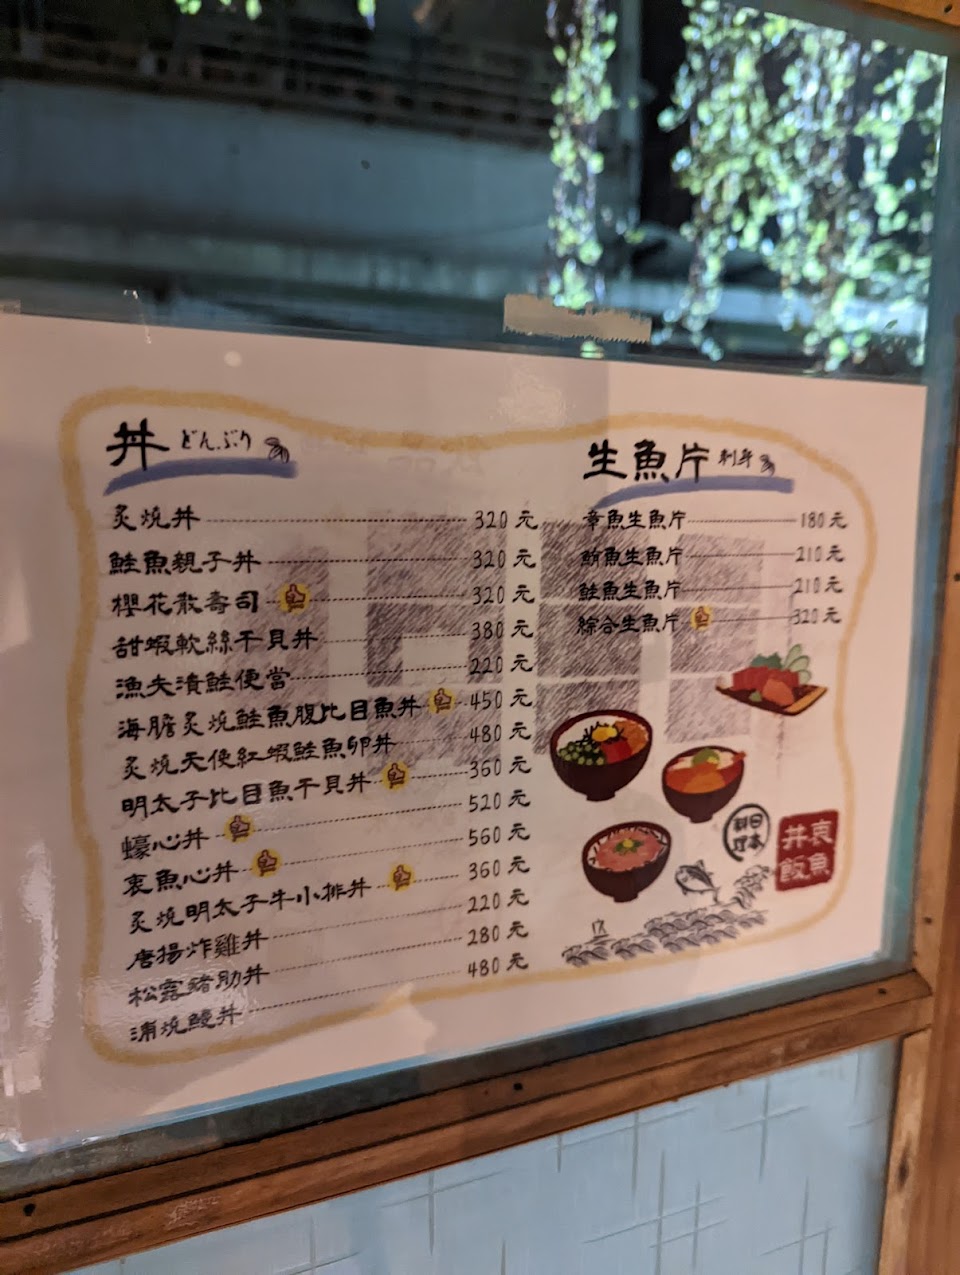 丼 どんぶり
炙燒丼 320元
鮭魚親子丼 320元
櫻花散壽司 320元
甜蝦軟絲干貝丼 380元
漁夫漬鮭便當 220元
海膽炙燒鮭魚腹比目魚丼 450元
炙燒天使紅蝦鮭魚卵丼 480元
明太子比目魚干貝丼 360元
蠔心丼 520元
衷魚心丼 560元
炙燒明太子牛小排丼 360元
唐揚炸雞丼 220元
松露豬肋丼 280元
浦燒鰻丼 480元
生魚片 刺身
章魚生魚片 180元
鮪魚生魚片 210元
鮭魚生魚片 210元
綜合生魚片 320元
日本料理
衷魚丼飯